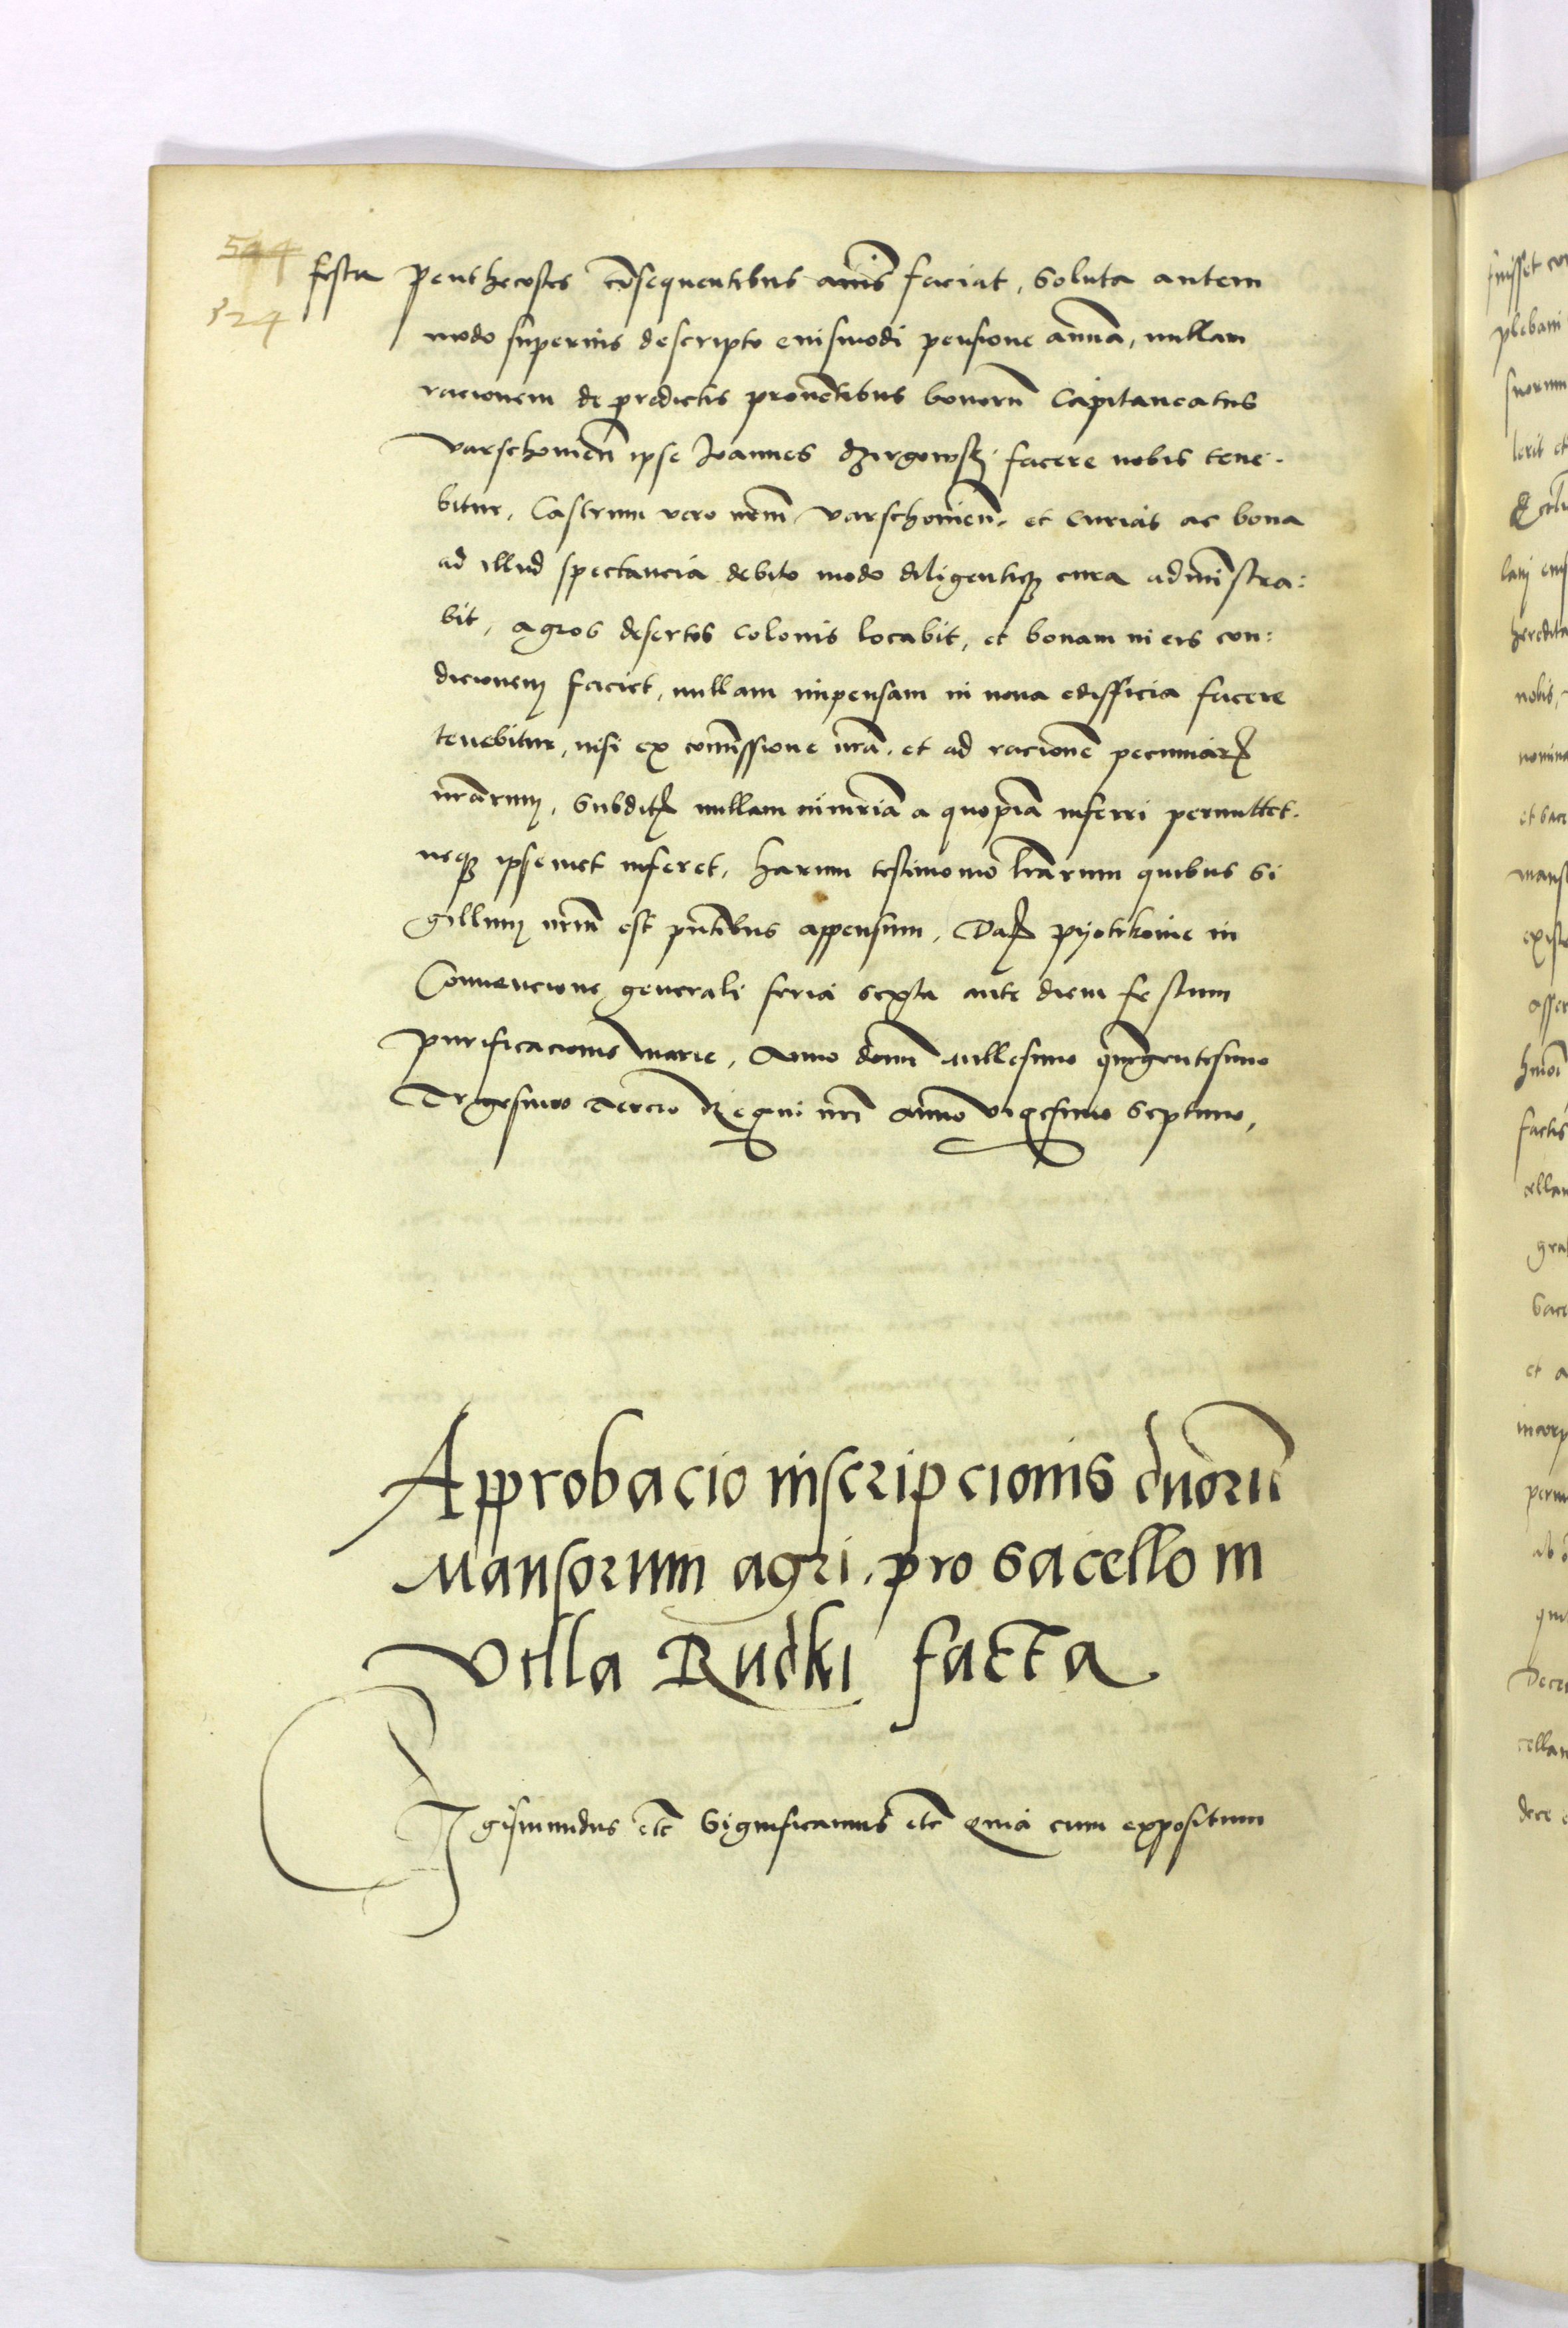 544
324
festa penthecostes cõsequentibus añis faciat, Soluta autem
modo superius descripto eiusmodi pensione annua, nullam
racionem de predictis proventibus bonorũ Capitaneatus
varschovieñ ipse Joannes dzirgowskj facere nobis tene-
bitur, Castrum vero nrm̃ varschovieñ et curias ac bona
ad illud spectancia debito modo diligentiqȝ cura administra:
bit, agros desertos colonis locabit, et bonam in eis con:
dicionem faciet, nullam impensam in nova edifficia facere
tenebitur, nisi ex com̃issione nrã et ad racionẽ pecuniarꝝ
nrãrum, Subditꝭ nullam iniuriã a quopiã inferri permittet.
neqȝ ipsemet inferet, harum testimonio lrãrum quibus Si
gillum nrm̃ est pñtibus appensum, Datꝭ pyotrkovie in
Convencione generali feria sexta ante diem festum
purificacionis marie, Anno domĩ millesimo quingentesimo
Trigesimo tercio Regni nrĩ anno vigesimo septimo,
Approbacio inscripcionis duorũ
Mansorum agri pro sacello in
villa Rudki facta
Sigismundus etc̃ Significamus etc̃ Quia cum expositum
fuisset
plebani
hereditat
nobis,